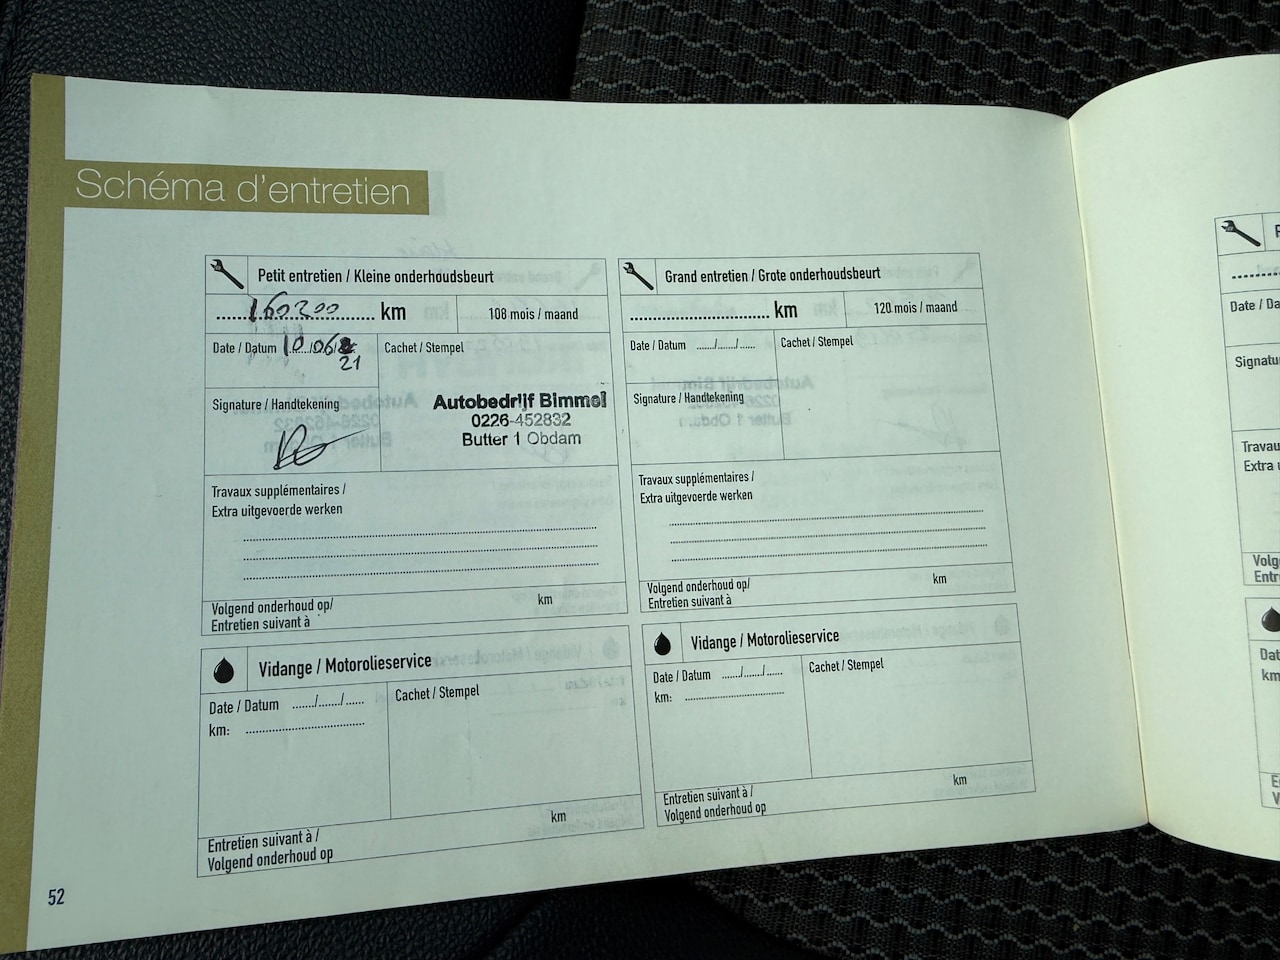 Schéma d'entretien
Petit entretien / Kleine onderhoudsbeurt
160200 km
108 mois / maand
Date / Datum 10.06.
21
Cachet / Stempel
Signature / Handtekening
Autobedrijf Bimmel
0226-452832
Butter 1 Obdam
Travaux supplémentaires /
Extra uitgevoerde werken
Volgend onderhoud op/ km
Entretien suivant à
Vidange / Motorolieservice
Date / Datum ....../....../......
km:
Cachet / Stempel
Entretien suivant à / km
Volgend onderhoud op
Grand entretien / Grote onderhoudsbeurt
km
120 mois / maand
Date / Datum ....../....../......
Cachet / Stempel
Signature / Handtekening
Travaux supplémentaires /
Extra uitgevoerde werken
Volgend onderhoud op/ km
Entretien suivant à
Vidange / Motorolieservice
Date / Datum ....../....../......
km:
Cachet / Stempel
Entretien suivant à / km
Volgend onderhoud op
52
Date / Da
Signatu
Travau
Extra u
Volg
Entr
Dat
km